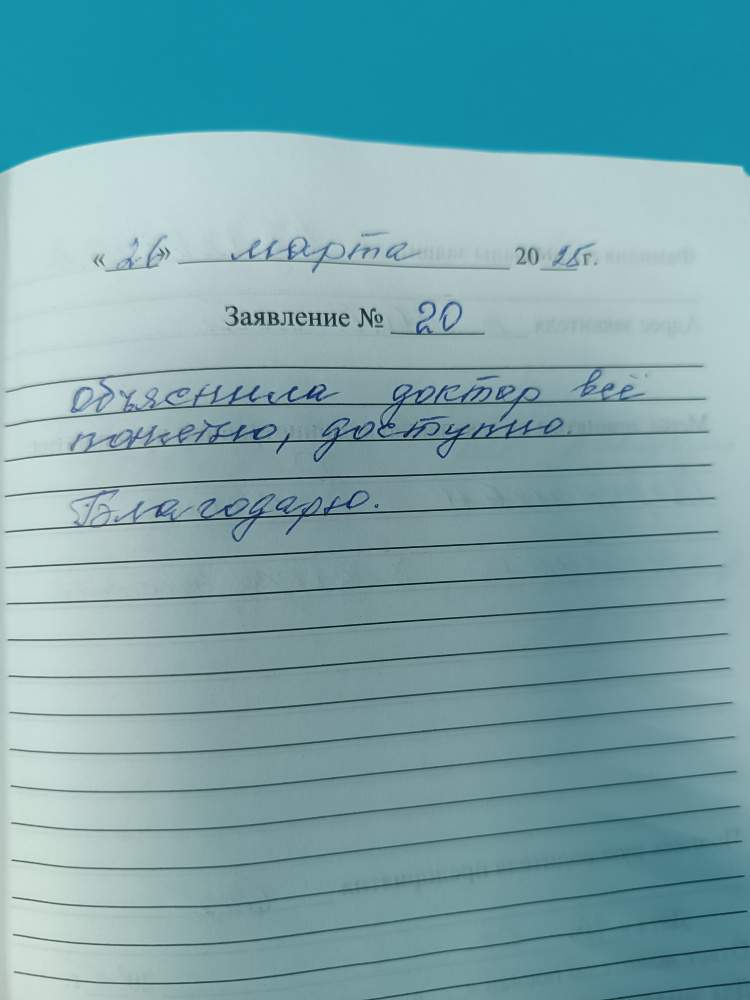 «26» марта 2025г.
Заявление № 20
объяснила доктор всё
понятно, доступно.
Благодарю.